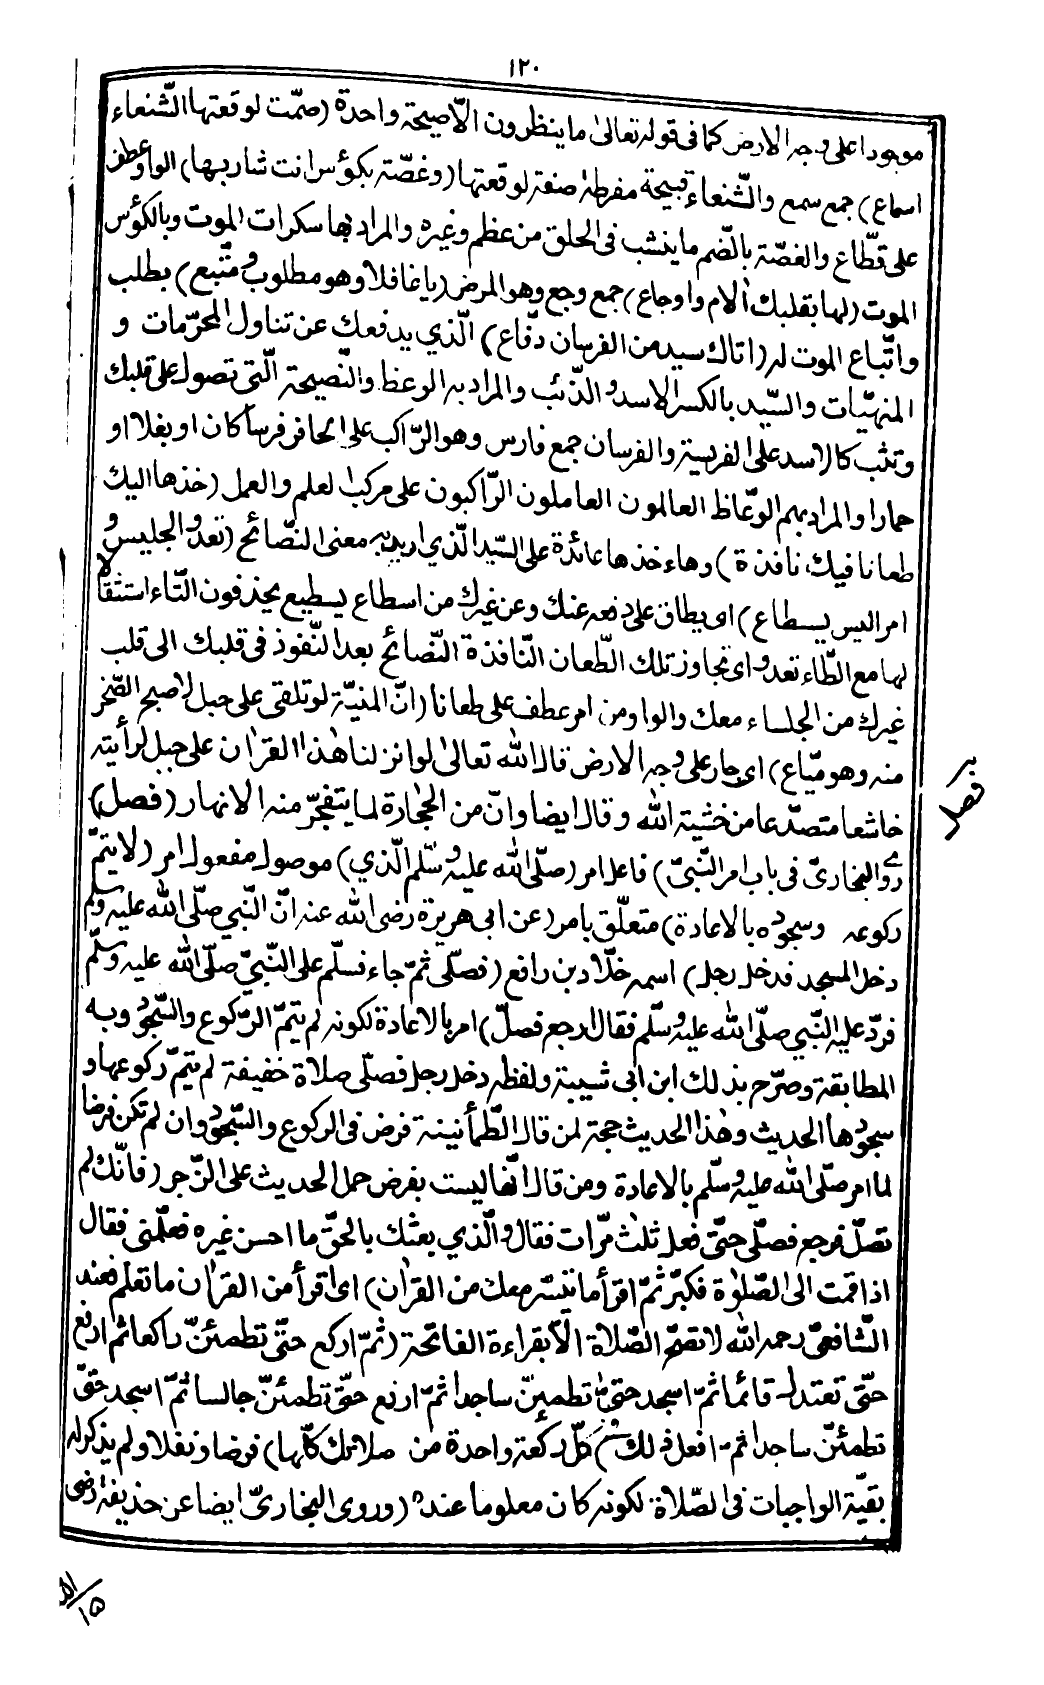 ١٢٠
موجودا على وجه الارض كما فى قوله تعالىٰ ما ينظرون الّا صيحة واحدة (صمّت لوقعتها الشّنعاء
اسماع) جمع سمع والشّنعاء قبيحة مفرطة صفة لوقعتها (وغصّة بكؤس انت شاربها) الواو عطف
على قطّاع والغصّة بالضّم ما ينشب فى الحلق من عظم وغيره والمراد بها سكرات الموت وبالكؤس
الموت (لها بقلبك اٰلام واوجاع) جمع وجع وهو المرض (يا غافلا وهو مطلوب ومتّبع) بطلب
واتّباع الموت له (اتاك سيد من الفرسان دفّاع) الّذي يدفعك عن تناول المحرّمات و
المنهيّات والسّيد بالكسر الاسد والذّئب والمراد به الوعظ والنّصيحة الّتى تصول على قلبك
وتثب كالاسد على الفريسة والفرسان جمع فارس وهو الرّاكب على الحافر فرسا كان او بغلا او
حمارا والمراد بهم الوعّاظ العالمون العاملون الرّاكبون على مركب العلم والعمل (خذها اليك
طعانا فيك نافذة) وهاء خذها عائدة على السّيد الّذي اريد به معنى النصّائح (تعدو الجليس و
امر اليس يسطاع) اى يطاق على دفعه عنك وعن غيرك من اسطاع يسطيع يحذفون التّاء استثقالا
لها مع الطّاء تعدو اى تجاوز تلك الطّعان النّافذة النّصائح بعد النّفوذ فى قلبك الى قلب
غيرك من الجلساء معك والواو من امر عطف على طعانا (انّ المنيّة لو تلقى على جبل لاصبح الصّخر
منه وهو ميّاع) اى جار على وجه الارض قال الله تعالىٰ لو انزلنا هٰذا القراٰن على جبل لرأيته
خاشعا متصدّعا من خشية الله وقال ايضا وانّ من الحجارة لما يتفجّر منه الانهار (فصل)
روى البخاريّ فى باب امر النّبىّ) فاعل امر (صلّى الله عليه وسلّم الّذي) موصول مفعول امر (لا يتمّ
ركوعه وسجوده بالاعادة) متعلّق بامر (عن ابى هريرة رضى الله عنه انّ النّبي صلّى الله عليه وسلّم
دخل المسجد فدخل رجل) اسمه خلّاد بن رافع (فصلّى ثمّ جاء فسلّم على النّبيّ صلّى الله عليه وسلّم
فردّ عليه النّبي صلّى الله عليه وسلّم فقال ارجع فصلّ) امر بالاعادة لكونه لم يتمّ الرّكوع والسّجود وبه
المطابقة وصرّح بذلك ابن ابى شيبة ولفظه دخل رجل فصلّى صلاة خفيفة لم يتمّ ركوعها و
سجودها الحديث وهٰذا الحديث حجة لمن قال الطّمأنينة فرض فى الركوع والسّجود وان لم تكن فرضا
لما امر صلّى الله عليه وسلّم بالاعادة ومن قال انّها ليست بفرض حمل الحديث على الزّجر (فانّك لم
تصلّ فرجع فصلّى حتّى فعل ثلٰث مرّات فقال والّذي بعثك بالحقّ ما احسن غيره فعلّمنى فقال
اذا قمت الى الصّلوٰة فكبّر ثمّ اقرأ ما تيسّر معك من القراٰن) اى اقرأ من القراٰن ما تعلم فعند
الشّافعيّ رحمه الله لا تقم الصّلاة الّا بقراءة الفاتحة (ثمّ اركع حتّى تطمئنّ راكعا ثم ارفع
حتّى تعتدل قائما ثمّ اسجد حتّى تطمئنّ ساجدا ثمّ ارفع حتّى تطمئنّ جالسا ثمّ اسجد حتّى
تطمئنّ ساجدا ثم افعل ذلك فى كلّ ركعة واحدة من صلاتك كلّها) فرضا ونفلا ولم يذكر له
بقيّة الواجبات فى الصّلاة لكونه كان معلوما عنده (وروى البخاريّ ايضا عن حذيفة رضى
فصل
١٥